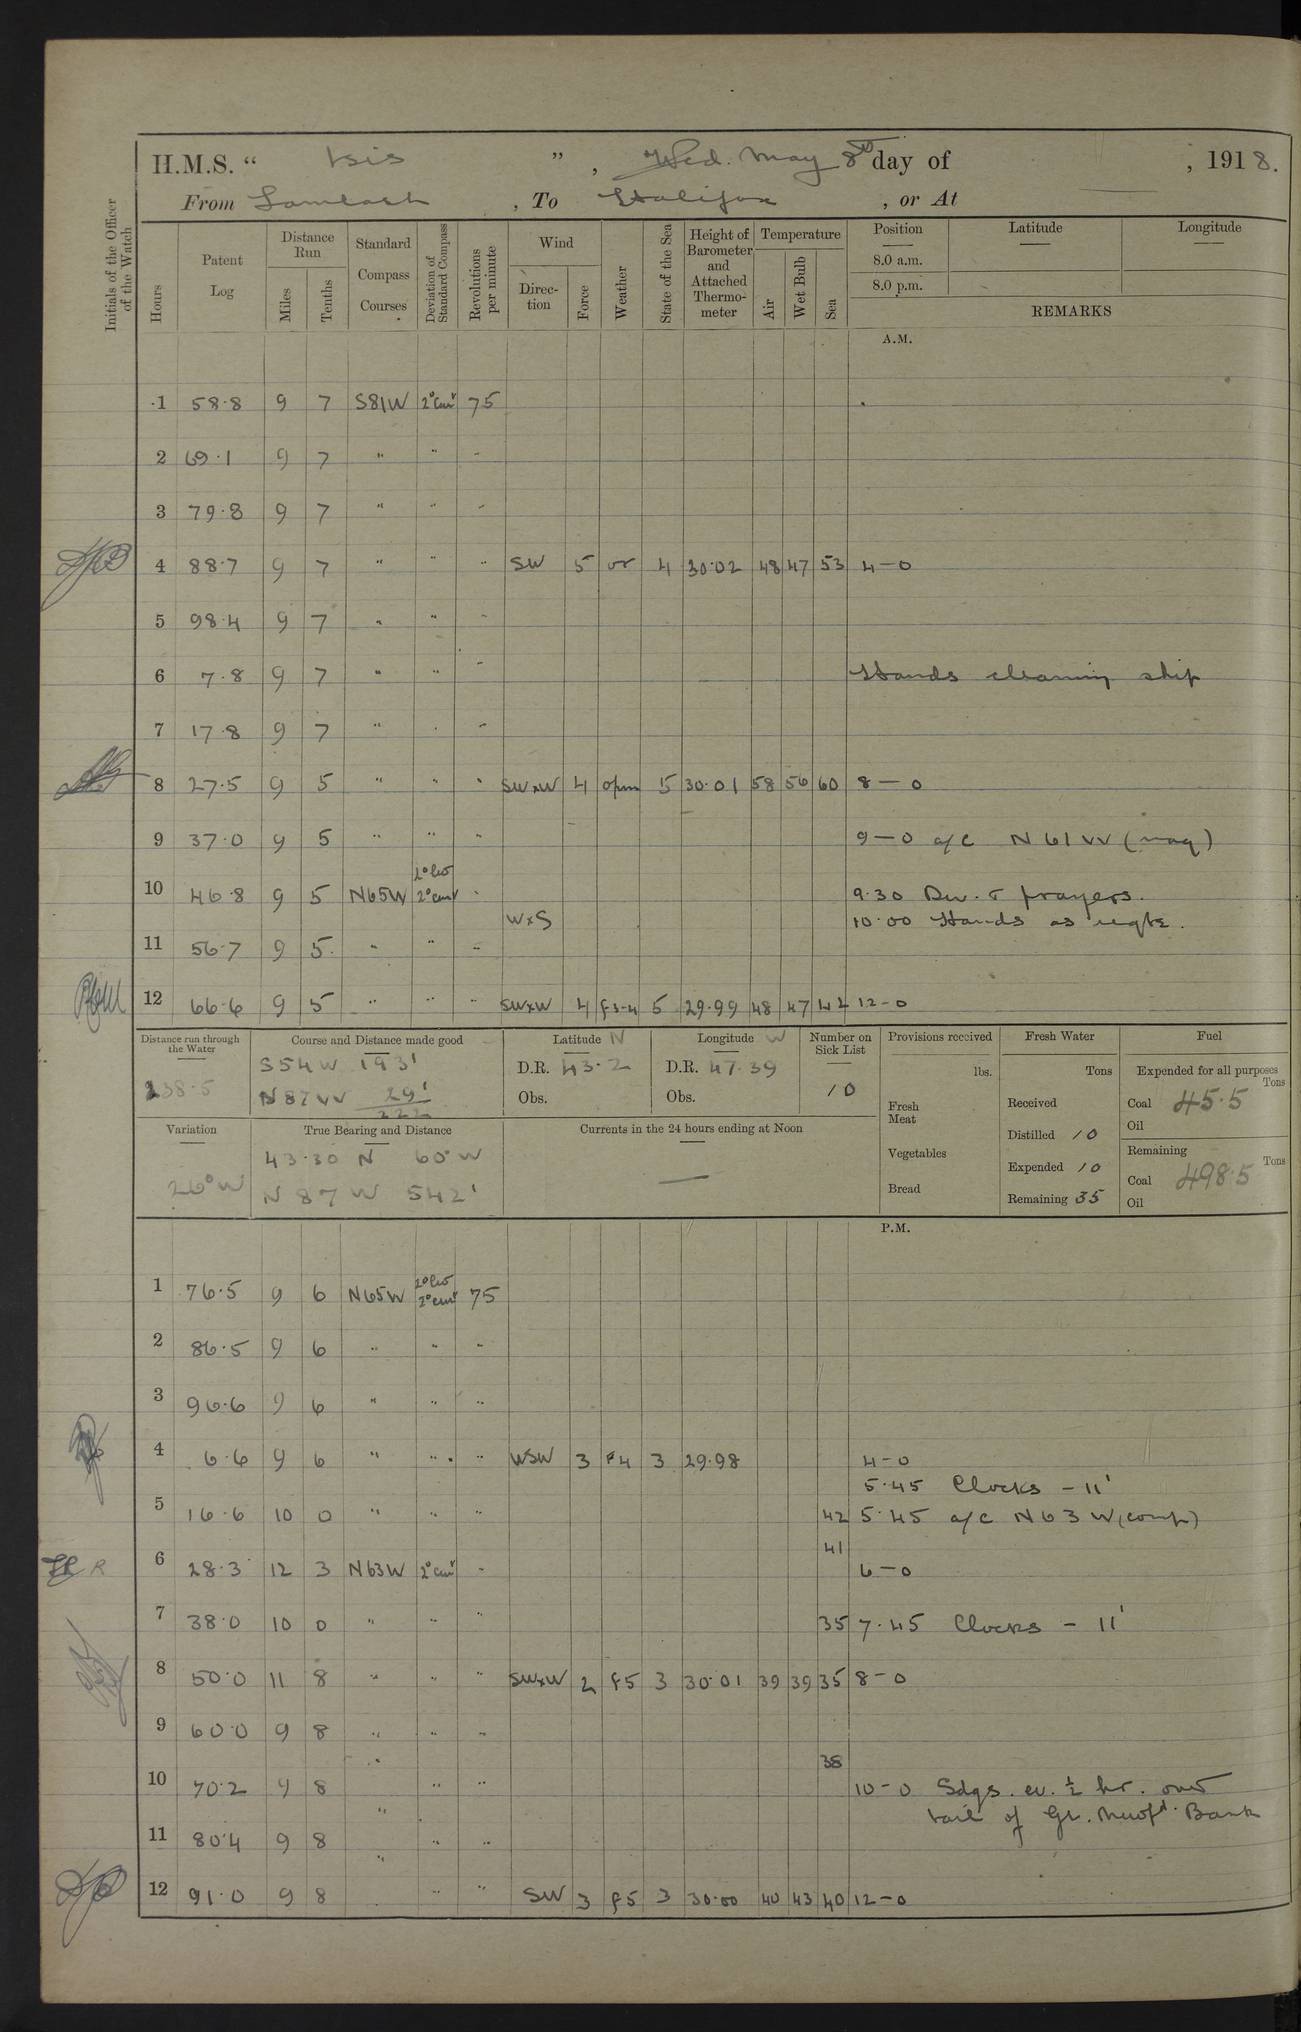 H.M.S. " Isis ", Wed. May 8th day of , 1918.
From Lamlash, To Halifax, or At
Initials of the Officer of the Watch
Hours
Patent Log
Distance Run
Miles
Tenths
Standard Compass Courses
Deviation of Standard Compass
Revolutions per minute
Wind
Direction
Force
Weather
State of the Sea
Height of Barometer and Attached Thermometer
Temperature
Air
Wet Bulb
Sea
Position
8.0 a.m.
8.0 p.m.
Latitude
Longitude
REMARKS
A.M.
1 58.8 9 7 S81W 2° 75
2 69.1 9 7 " " "
3 79.8 9 7 " " "
4 88.7 9 7 " " " SW 5 or 4 30.02 48 47 53 4-0
5 98.4 9 7 " " "
6 7.8 9 7 " " " Hands cleaning ship
7 17.8 9 7 " " "
8 27.5 9 5 " " " SWxW 4 opm 5 30.01 58 56 60 8-0
9 37.0 9 5 " " " 9-0 a/c N61W (mag)
10 46.8 9 5 N65W 2° 2° " 9.30 Div. & prayers.
WxS 10.00 Hands as reqte.
11 56.7 9 5 " " "
12 66.6 9 5 " " " SWxW 4 f3-4 5 29.99 48 47 42 12-0
Distance run through the Water
238.5
Course and Distance made good
S54W 193'
N87W 29'
222
Latitude N
D.R. 43.2
Obs.
Longitude W
D.R. 47.39
Obs.
Number on Sick List
10
Provisions received
lbs.
Fresh Meat
Vegetables
Bread
Fresh Water
Tons
Received
Distilled 10
Expended 10
Remaining 35
Fuel
Expended for all purposes
Tons
Coal 45.5
Oil
Remaining
Tons
Coal 498.5
Oil
Variation
26°W
True Bearing and Distance
43.30 N 60°W
N 87 W 542'
Currents in the 24 hours ending at Noon
—
P.M.
1 76.5 9 6 N65W 2° 2° 75
2 86.5 9 6 " " "
3 96.6 9 6 " " "
4 6.6 9 6 " " " WSW 3 F4 3 29.98 4-0
5.45 Clocks - 11'
5 16.6 10 0 " " " 42 5.45 a/c N63W (comp)
41
6 28.3 12 3 N63W 2° " 6-0
7 38.0 10 0 " " " 35 7.45 Clocks - 11'
8 50.0 11 8 " " " SWxW 2 f5 3 30.01 39 39 35 8-0
9 60.0 9 8 " " "
38
10 70.2 9 8 " " " 10-0 Sdgs. ev. ½ hr. over
tail of Gr. Newfd. Bank
11 80.4 9 8 " " "
12 91.0 9 8 " " " SW 3 f5 3 30.00 40 43 40 12-0